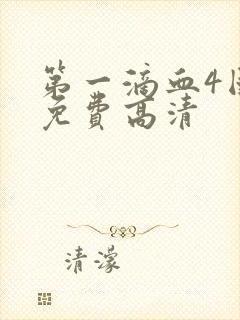 第一滴血4国
免费高清
清濛